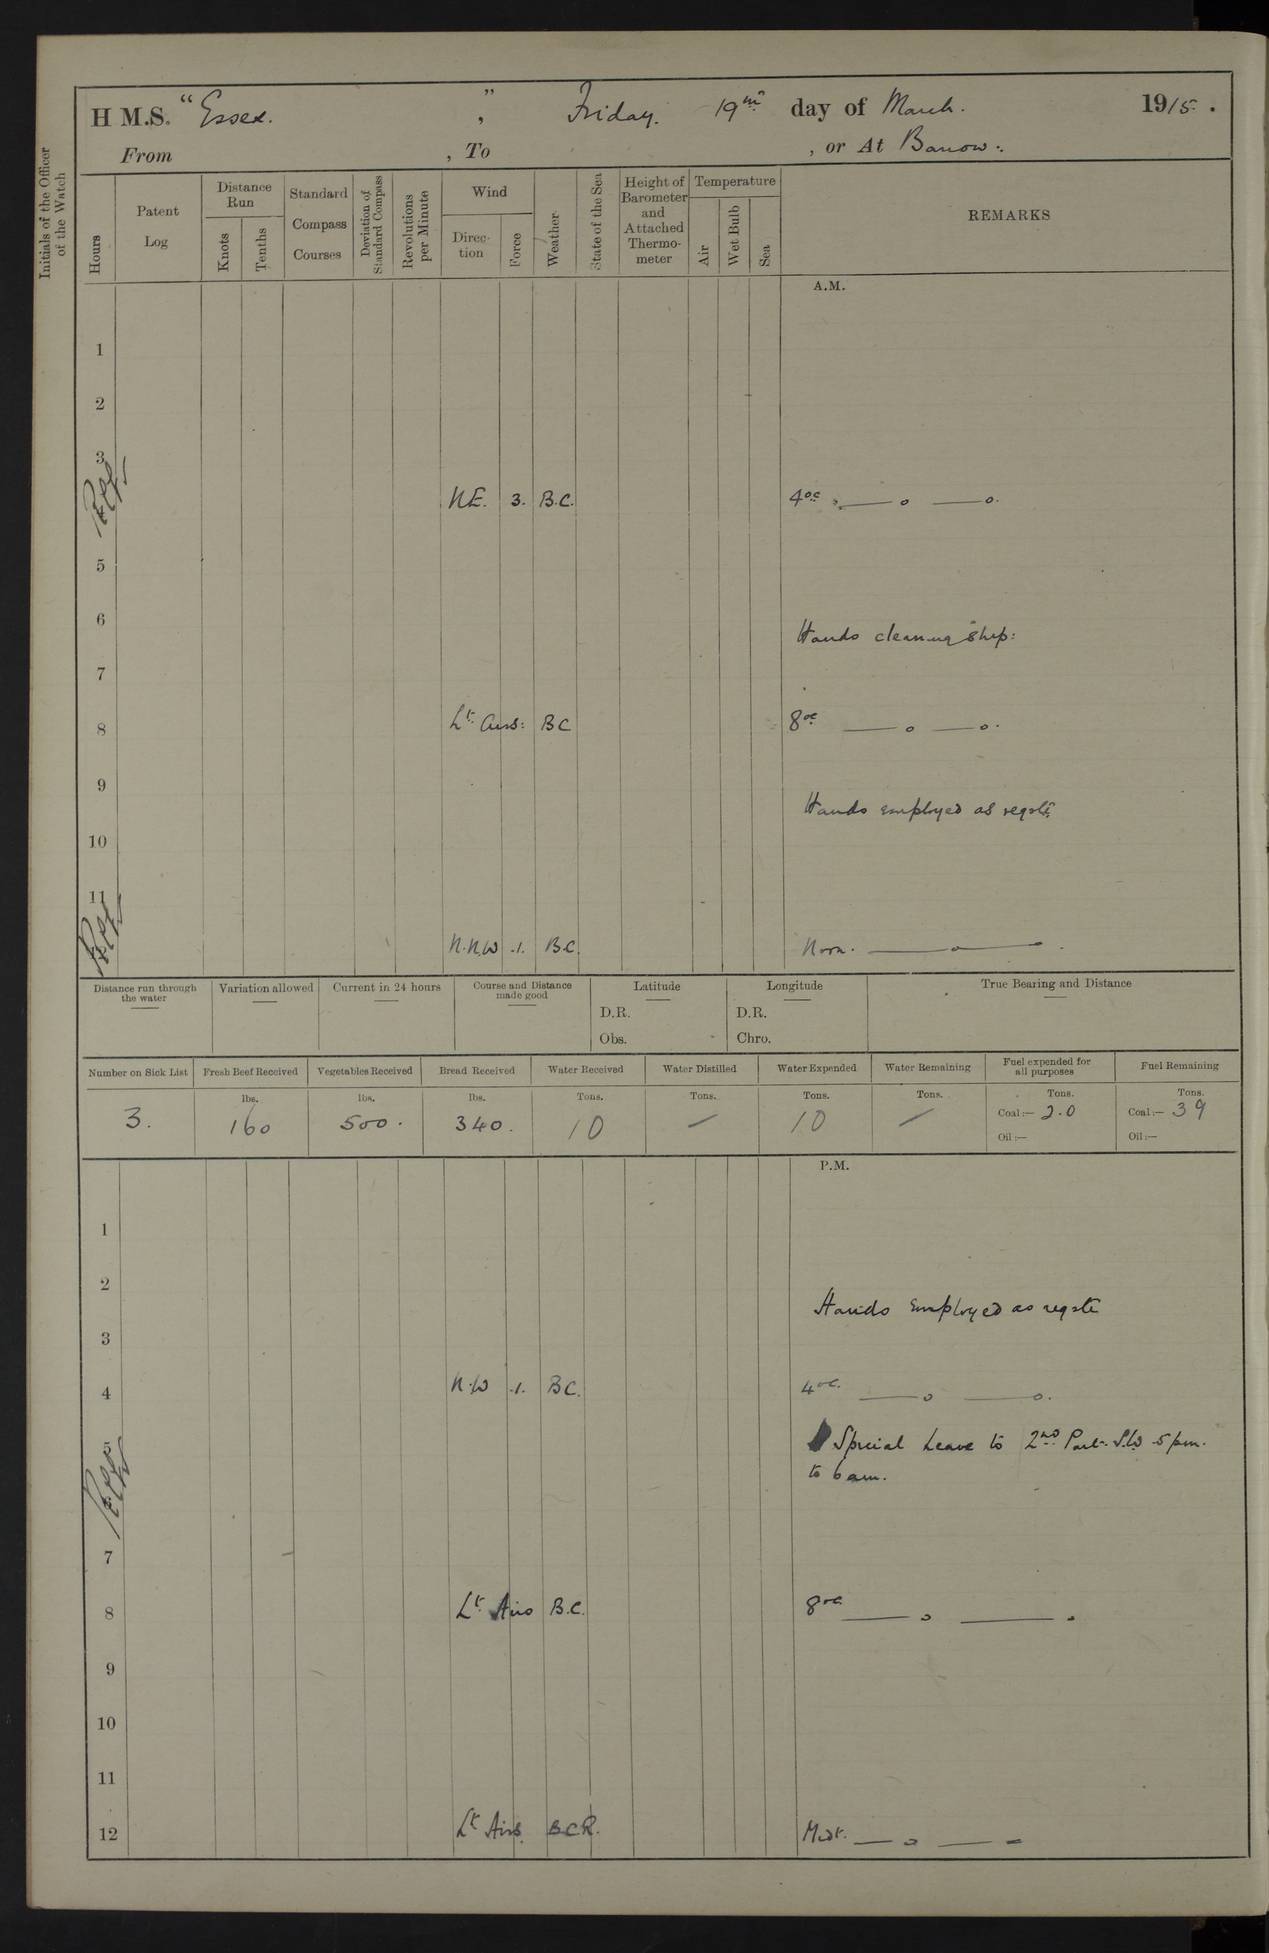 H M.S. "Essex. ", Friday. 19th day of March. 1915.
From , To , or At Barrow:.
Initials of the Officer of the Watch
Hours
Patent Log
Distance Run
Knots
Tenths
Standard Compass Courses
Deviation of Standard Compass
Revolutions per Minute
Wind
Direction
Force
Weather
State of the Sea
Height of Barometer and Attached Thermometer
Temperature
Air
Wet Bulb
Sea
REMARKS
A.M.
1
2
3
NE. 3. B.C. 4oc
5
6
Hands cleaning ship:
7
8 Lt Airs: BC 8oc
9
Hands employed as reqste
10
11
N.N.W .1. B.C. Noon.
Distance run through the water
Variation allowed
Current in 24 hours
Course and Distance made good
Latitude
D.R.
Obs.
Longitude
D.R.
Chro.
True Bearing and Distance
Number on Sick List Fresh Beef Received Vegetables Received Bread Received Water Received Water Distilled Water Expended Water Remaining Fuel expended for all purposes Fuel Remaining
lbs. lbs. lbs. Tons. Tons. Tons. Tons. Tons. Tons.
3. 160 500. 340. 10 — 10 — Coal:— 2.0 Coal:— 39
Oil:— Oil:—
P.M.
1
2
Hands employed as reqste
3
4 N.W .1. BC. 4oc.
5
Special Leave to 2nd Part. 5 pm.
to 6 am.
7
8 Lt Airs B.C. 8oc
9
10
11
12 Lt Airs. B.C.R. Midt.